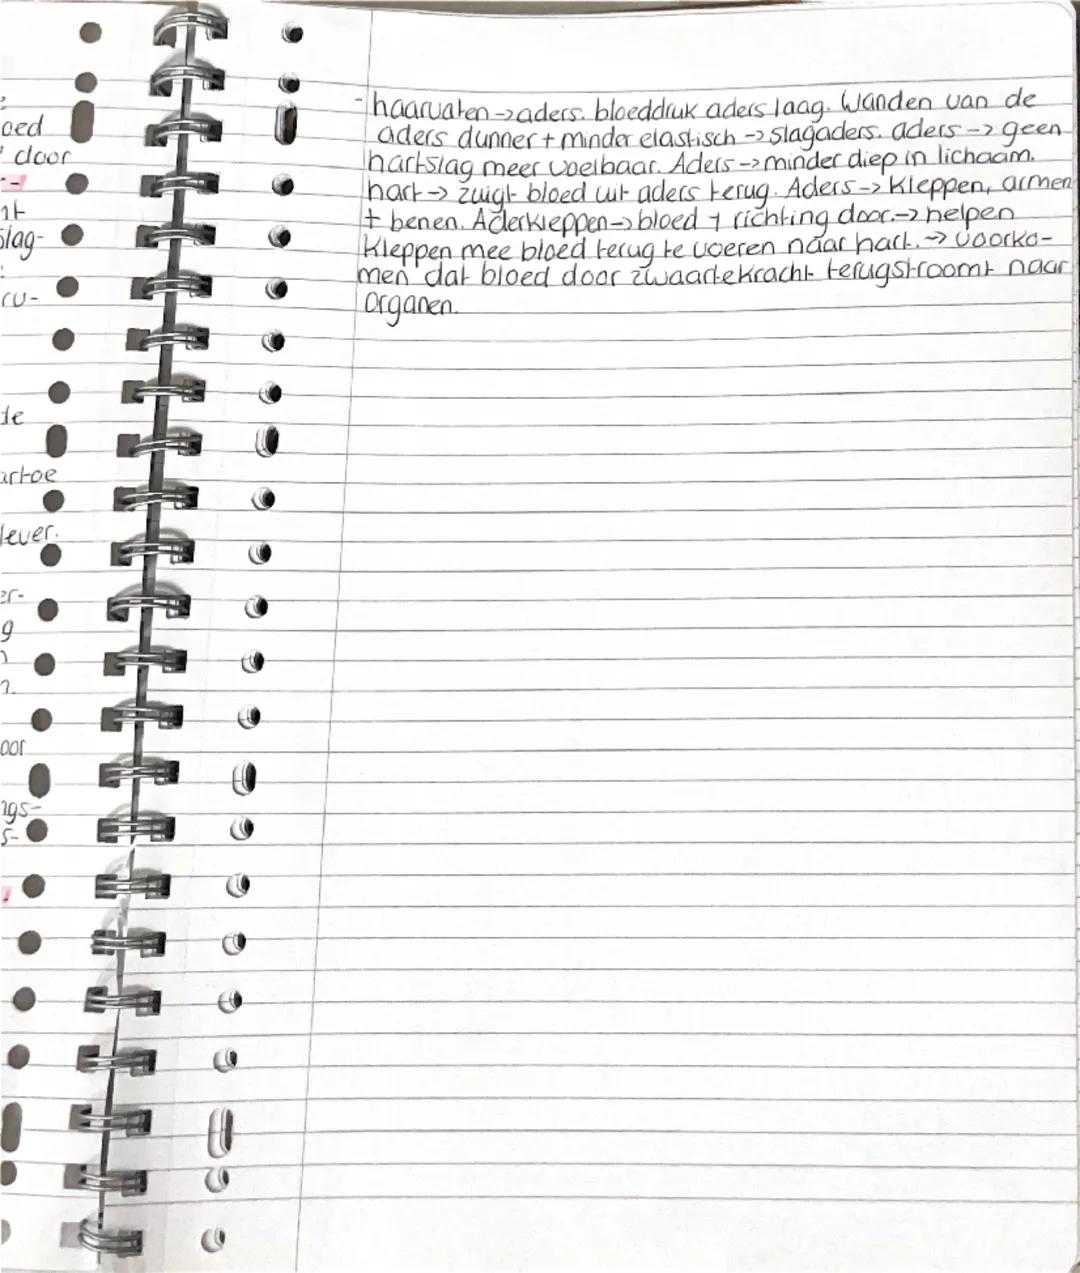 oed
door
slag-
cu-
te
artoe
lever.
er-
g
oor
ngs-
s-
- haarvaten -> aders. bloeddruk aders laag. Wanden van de
aders dunner + minder elastisch -> slagaders. aders -> geen
hartslag meer voelbaar. Aders -> minder diep in lichaam.
hart -> zuigt bloed uit aders terug. Aders -> kleppen, armen
+ benen. Aderkleppen -> bloed 1 richting door. -> helpen
kleppen mee bloed terug te voeren naar hart. -> voorko-
men dat bloed door zwaartekracht terugstroomt naar
organen.